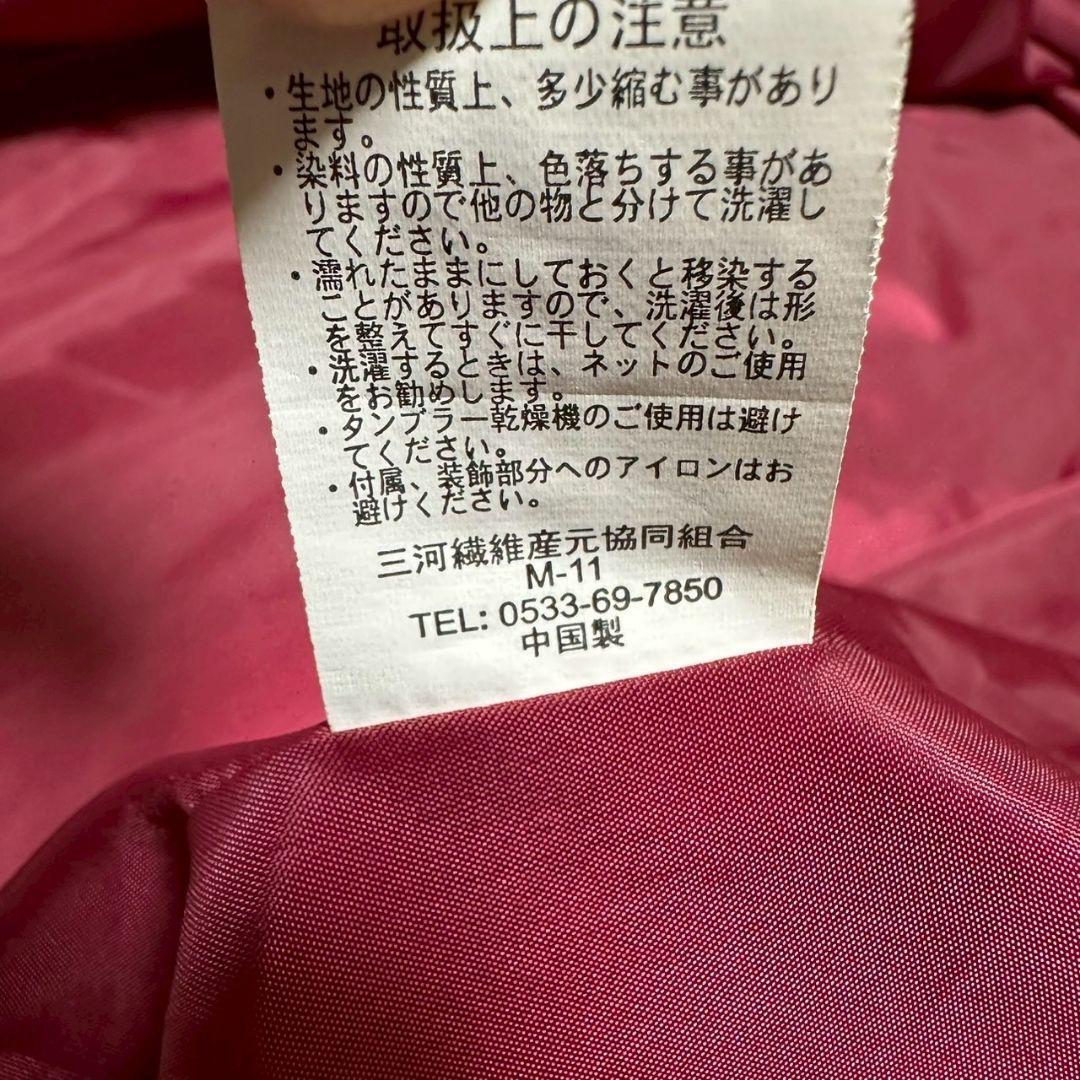 取扱上の注意
・生地の性質上、多少縮む事があり
ます。
・染料の性質上、色落ちする事があ
りますので他の物と分けて洗濯し
てください。
・濡れたままにしておくと移染する
ことがありますので、洗濯後は形
を整えてすぐに干してください。
・洗濯するときは、ネットのご使用
をお勧めします。
・タンブラー乾燥機のご使用は避け
てください。
・付属、装飾部分へのアイロンはお
避けください。
三河繊維産元協同組合
M-11
TEL: 0533-69-7850
中国製